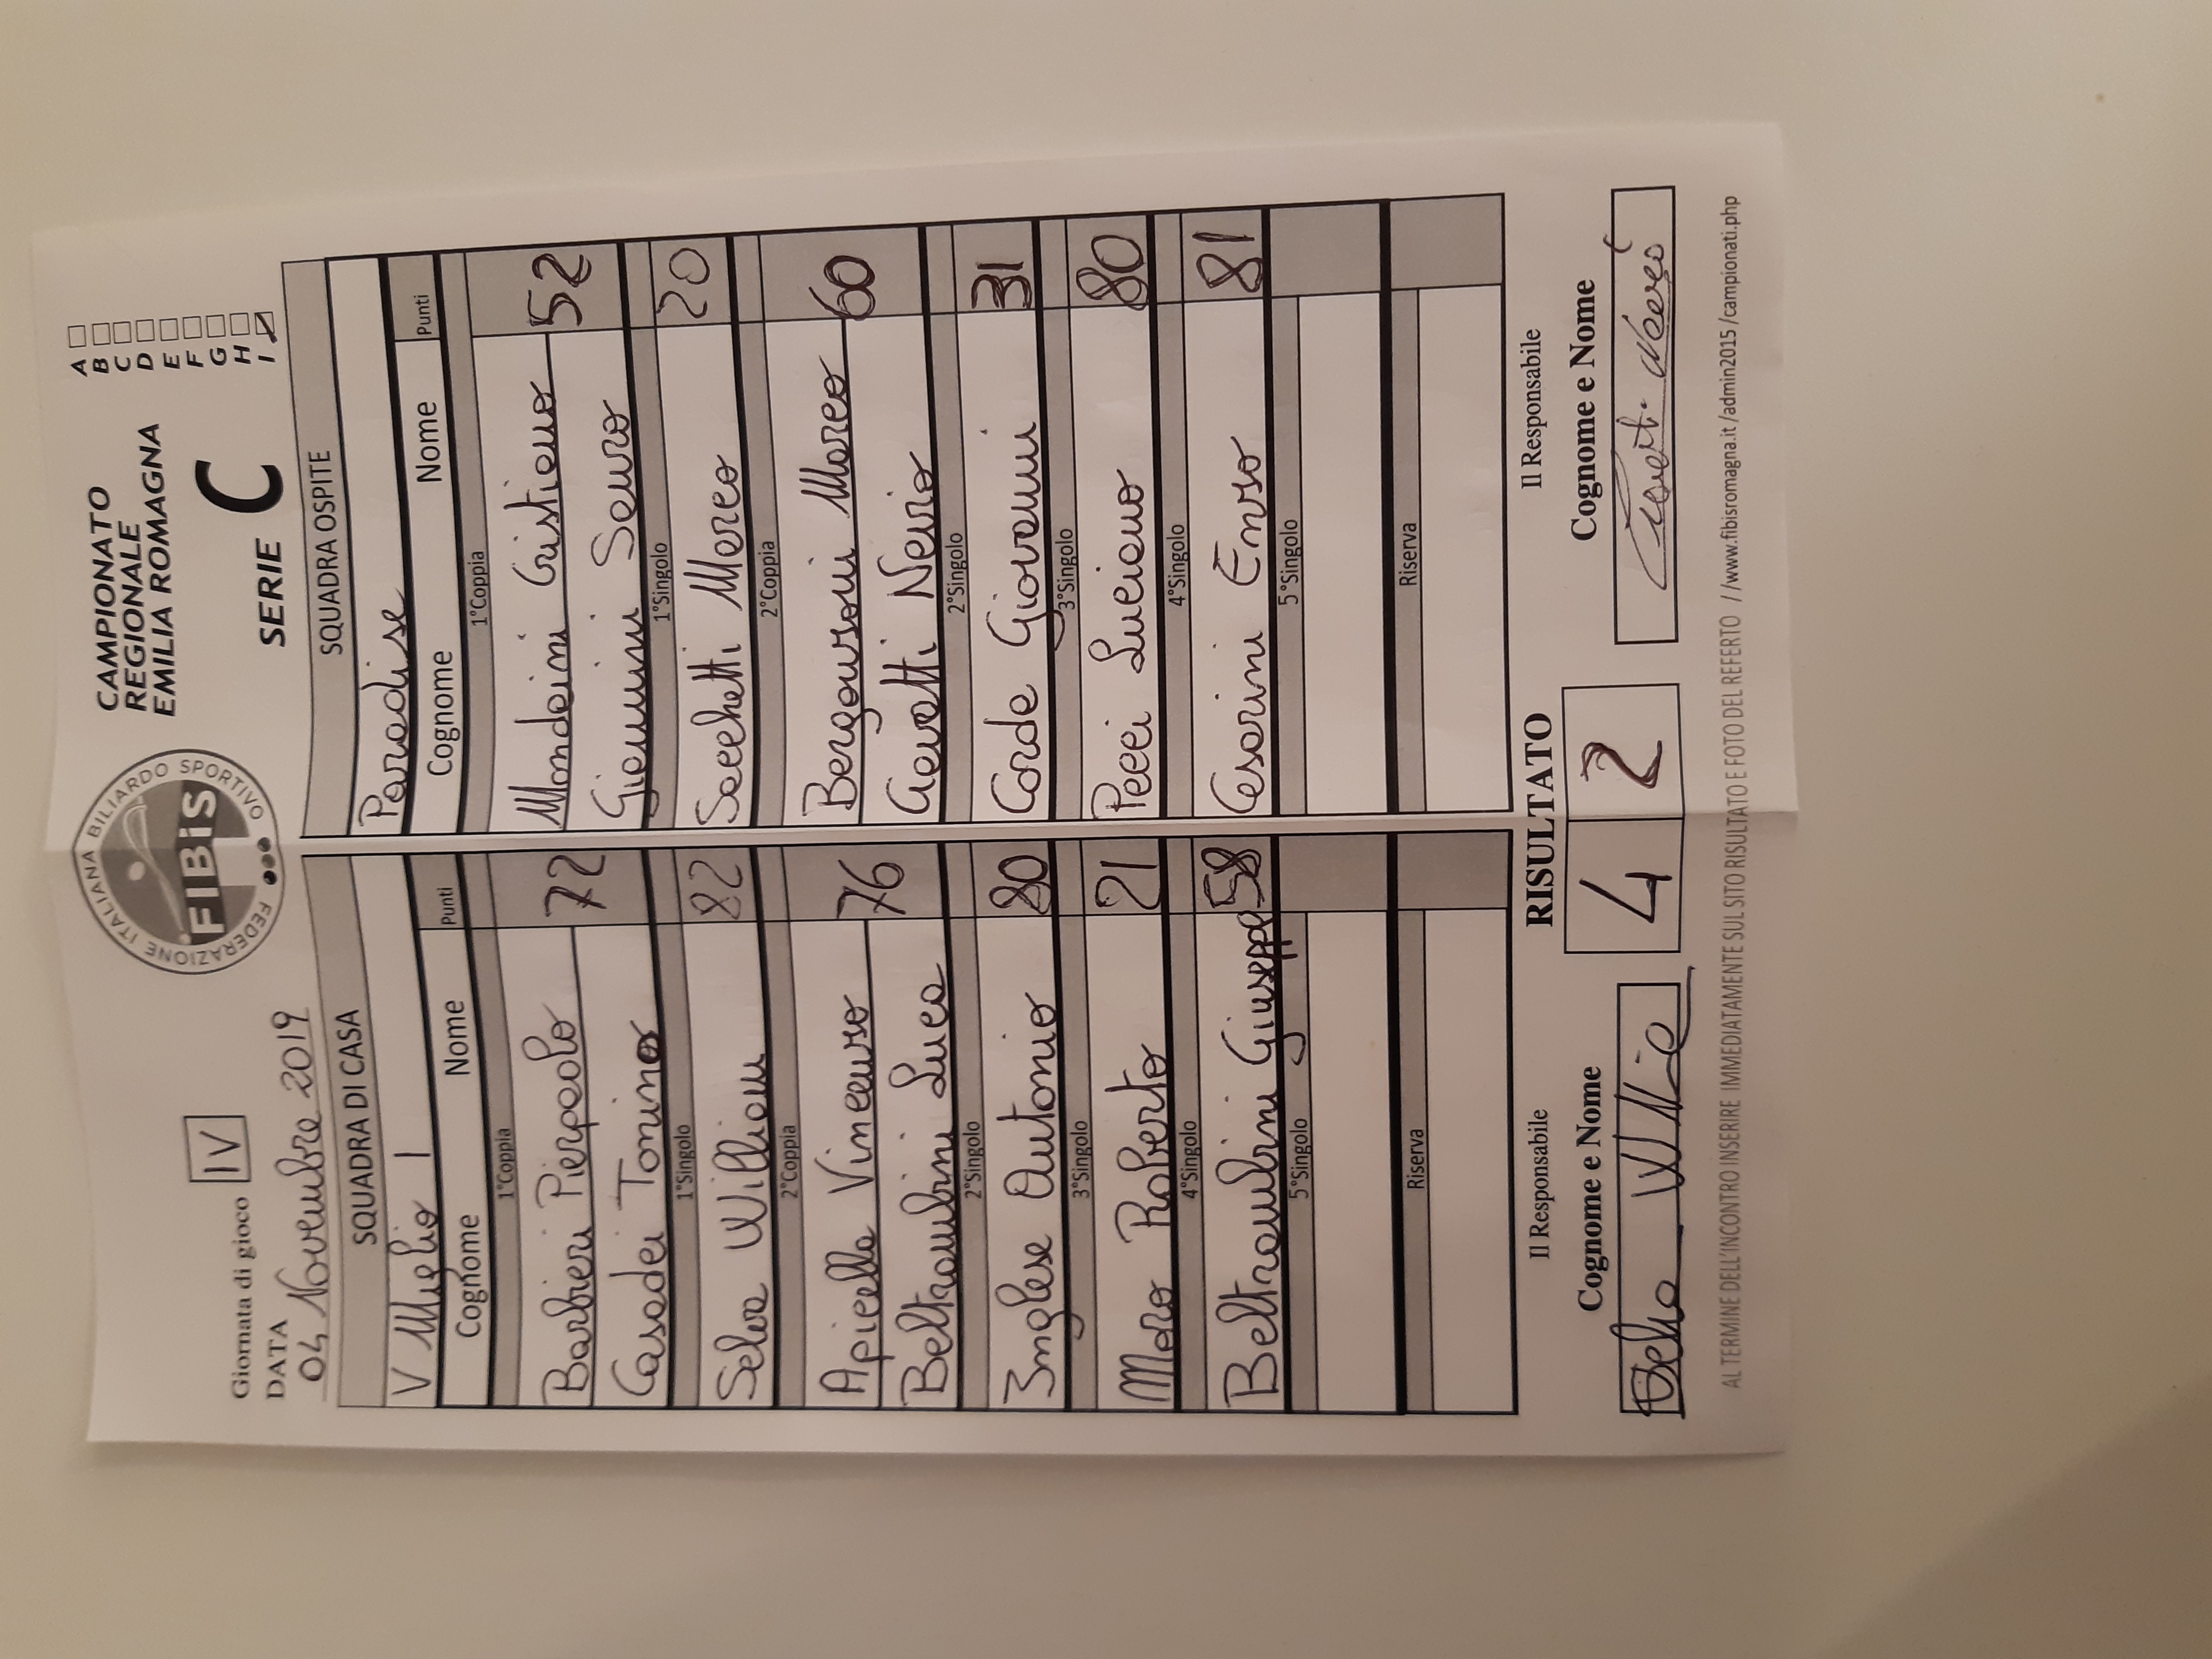 Giornata di gioco IV
DATA
04 Novembre 2019
FEDERAZIONE ITALIANA BILIARDO SPORTIVO
FIBiS
CAMPIONATO
REGIONALE
EMILIA ROMAGNA
SERIE C
A
B
C
D
E
F
G
H
I
SQUADRA DI CASA
V Miglio 1
Cognome Nome Punti
1°Coppia
Barbieri Pierpaolo 72
Casadei Tonino
1°Singolo
Selva William 82
2°Coppia
Apicella Vincenzo 76
Beltrambini Luca
2°Singolo
Inglese Antonio 80
3°Singolo
Moro Roberto 21
4°Singolo
Beltrambini Giuseppe 58
5°Singolo
Riserva
SQUADRA OSPITE
Paradise
Cognome Nome Punti
1°Coppia
Mondaini Cristiano 52
Giannini Sauro
1°Singolo
Sacchetti Marco 20
2°Coppia
Bergonzoni Marco 60
Cavatti Nevio
2°Singolo
Corde Giovanni 31
3°Singolo
Pecci Luciano 80
4°Singolo
Cesarini Enzo 81
5°Singolo
Riserva
Il Responsabile
RISULTATO
Il Responsabile
Cognome e Nome
4 2
Cognome e Nome
AL TERMINE DELL'INCONTRO INSERIRE IMMEDIATAMENTE SUL SITO RISULTATO E FOTO DEL REFERTO //www.fibisromagna.it /admin2015 /campionati.php